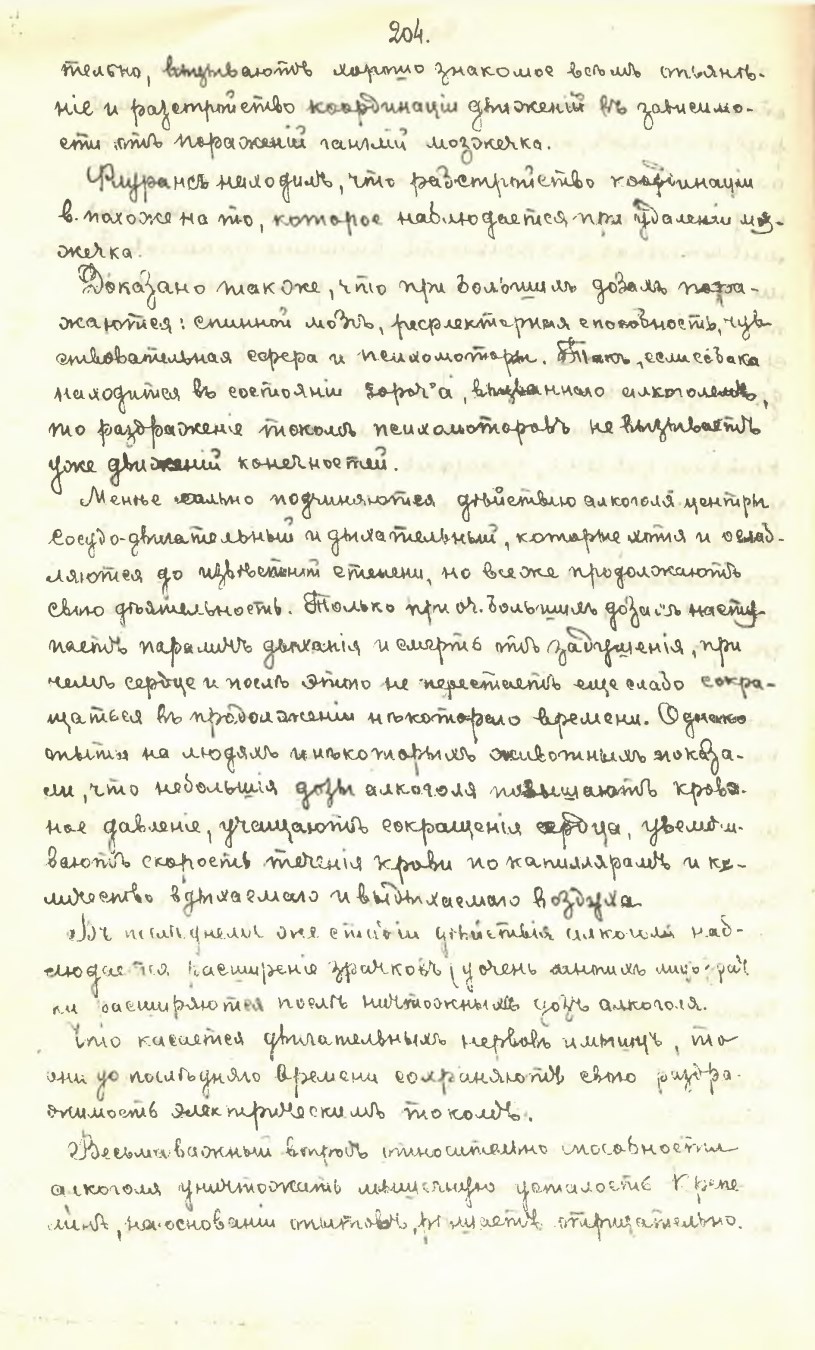 204.
тельно, вызываютъ хорошо знакомое всѣмъ опьянѣ-
ніе и разстройство координаціи движеній въ зависимо-
сти отъ пораженій ганглій мозжечка.
Флурансъ находилъ, что разстройство координаціи
в. похоже на то, которое наблюдается при удаленіи моз-
жечка.
Доказано также, что при большихъ дозахъ пора-
жаются: спинной мозгъ, рефлекторная способность, чув-
ствовательная сфера и психомоторы. Такъ, если собака
находится въ состояніи вызваннаго алкоголемъ,
то раздраженіе токомъ психомоторовъ не вызываетъ
уже движеній конечностей.
Менѣе сильно подчиняются дѣйствію алкоголя центры
сосудо-двигательный и дыхательный, которые хотя и ослаб-
ляются до извѣстной степени, но все же продолжаютъ
свою дѣятельность. Только при оч. большихъ дозахъ насту-
паетъ параличъ дыханія и смерть отъ задушенія, при
чемъ сердце и послѣ этого не перестаетъ еще слабо сокра-
щаться въ продолженіи нѣкотораго времени. Однако
опыты на людяхъ и нѣкоторыхъ животныхъ показа-
ли, что небольшія дозы алкоголя повышаютъ кровя-
ное давленіе, учащаютъ сокращенія сердца, увели-
ваютъ скорость теченія крови по капиллярамъ и ко-
личество вдыхаемаго и выдыхаемаго воздуха.
Въ послѣднемъ же стадіи дѣйствія алкоголя наб-
людается расширеніе зрачковъ (у очень многихъ лицъ зрач
ки расширяются послѣ ничтожныхъ дозъ алкоголя.
Что касается двигательныхъ нервовъ и мышцъ, то
они до послѣдняго времени сохраняютъ свою раздра-
жимость электрическимъ токомъ.
Весьма важный вопросъ относительно способности
алкоголя уничтожать мышечную усталость Крепе
линъ, на основаніи опытовъ, рѣшаетъ отрицательно.